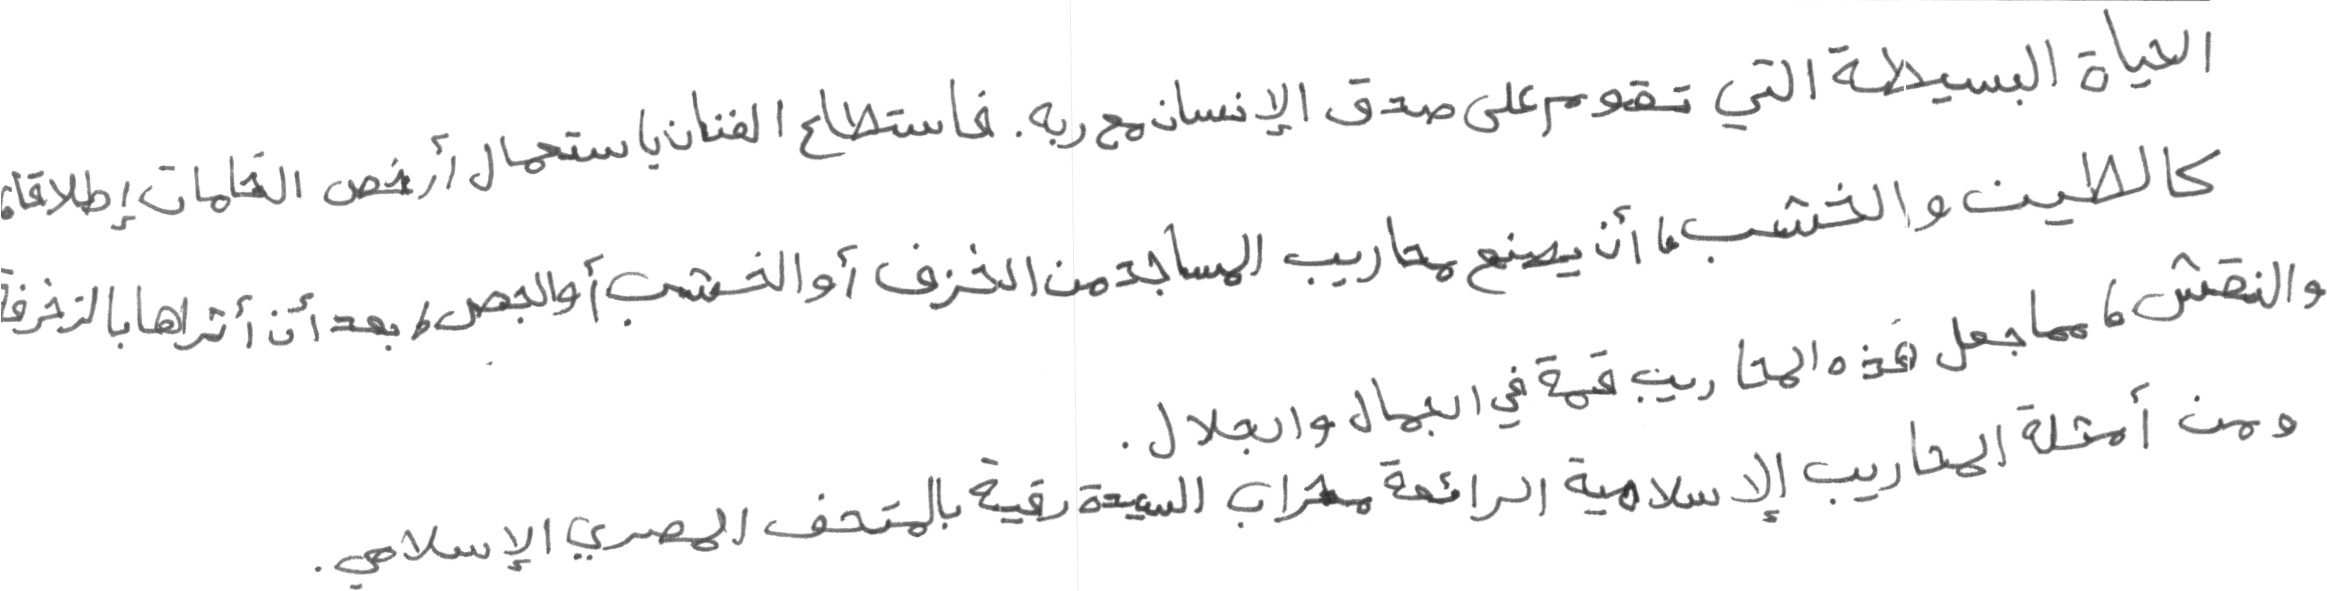 الحياة البسيطة التي تقوم على صدق الإنسان مع ربه. فاستطاع الفنان باستعمال أرخص الخامات إطلاقا،
كالطين والخشب، أن يصنع محاريب المساجد من الخزف أو الخشب أو الجص، بعد أن أثراها بالزخرفة
والنقش، مما جعل هذه المحاريب قمة في الجمال والجلال.
ومن أمثلة المحاريب الإسلامية الرائعة محراب السيدة رقية بالمتحف المصري الإسلامي.